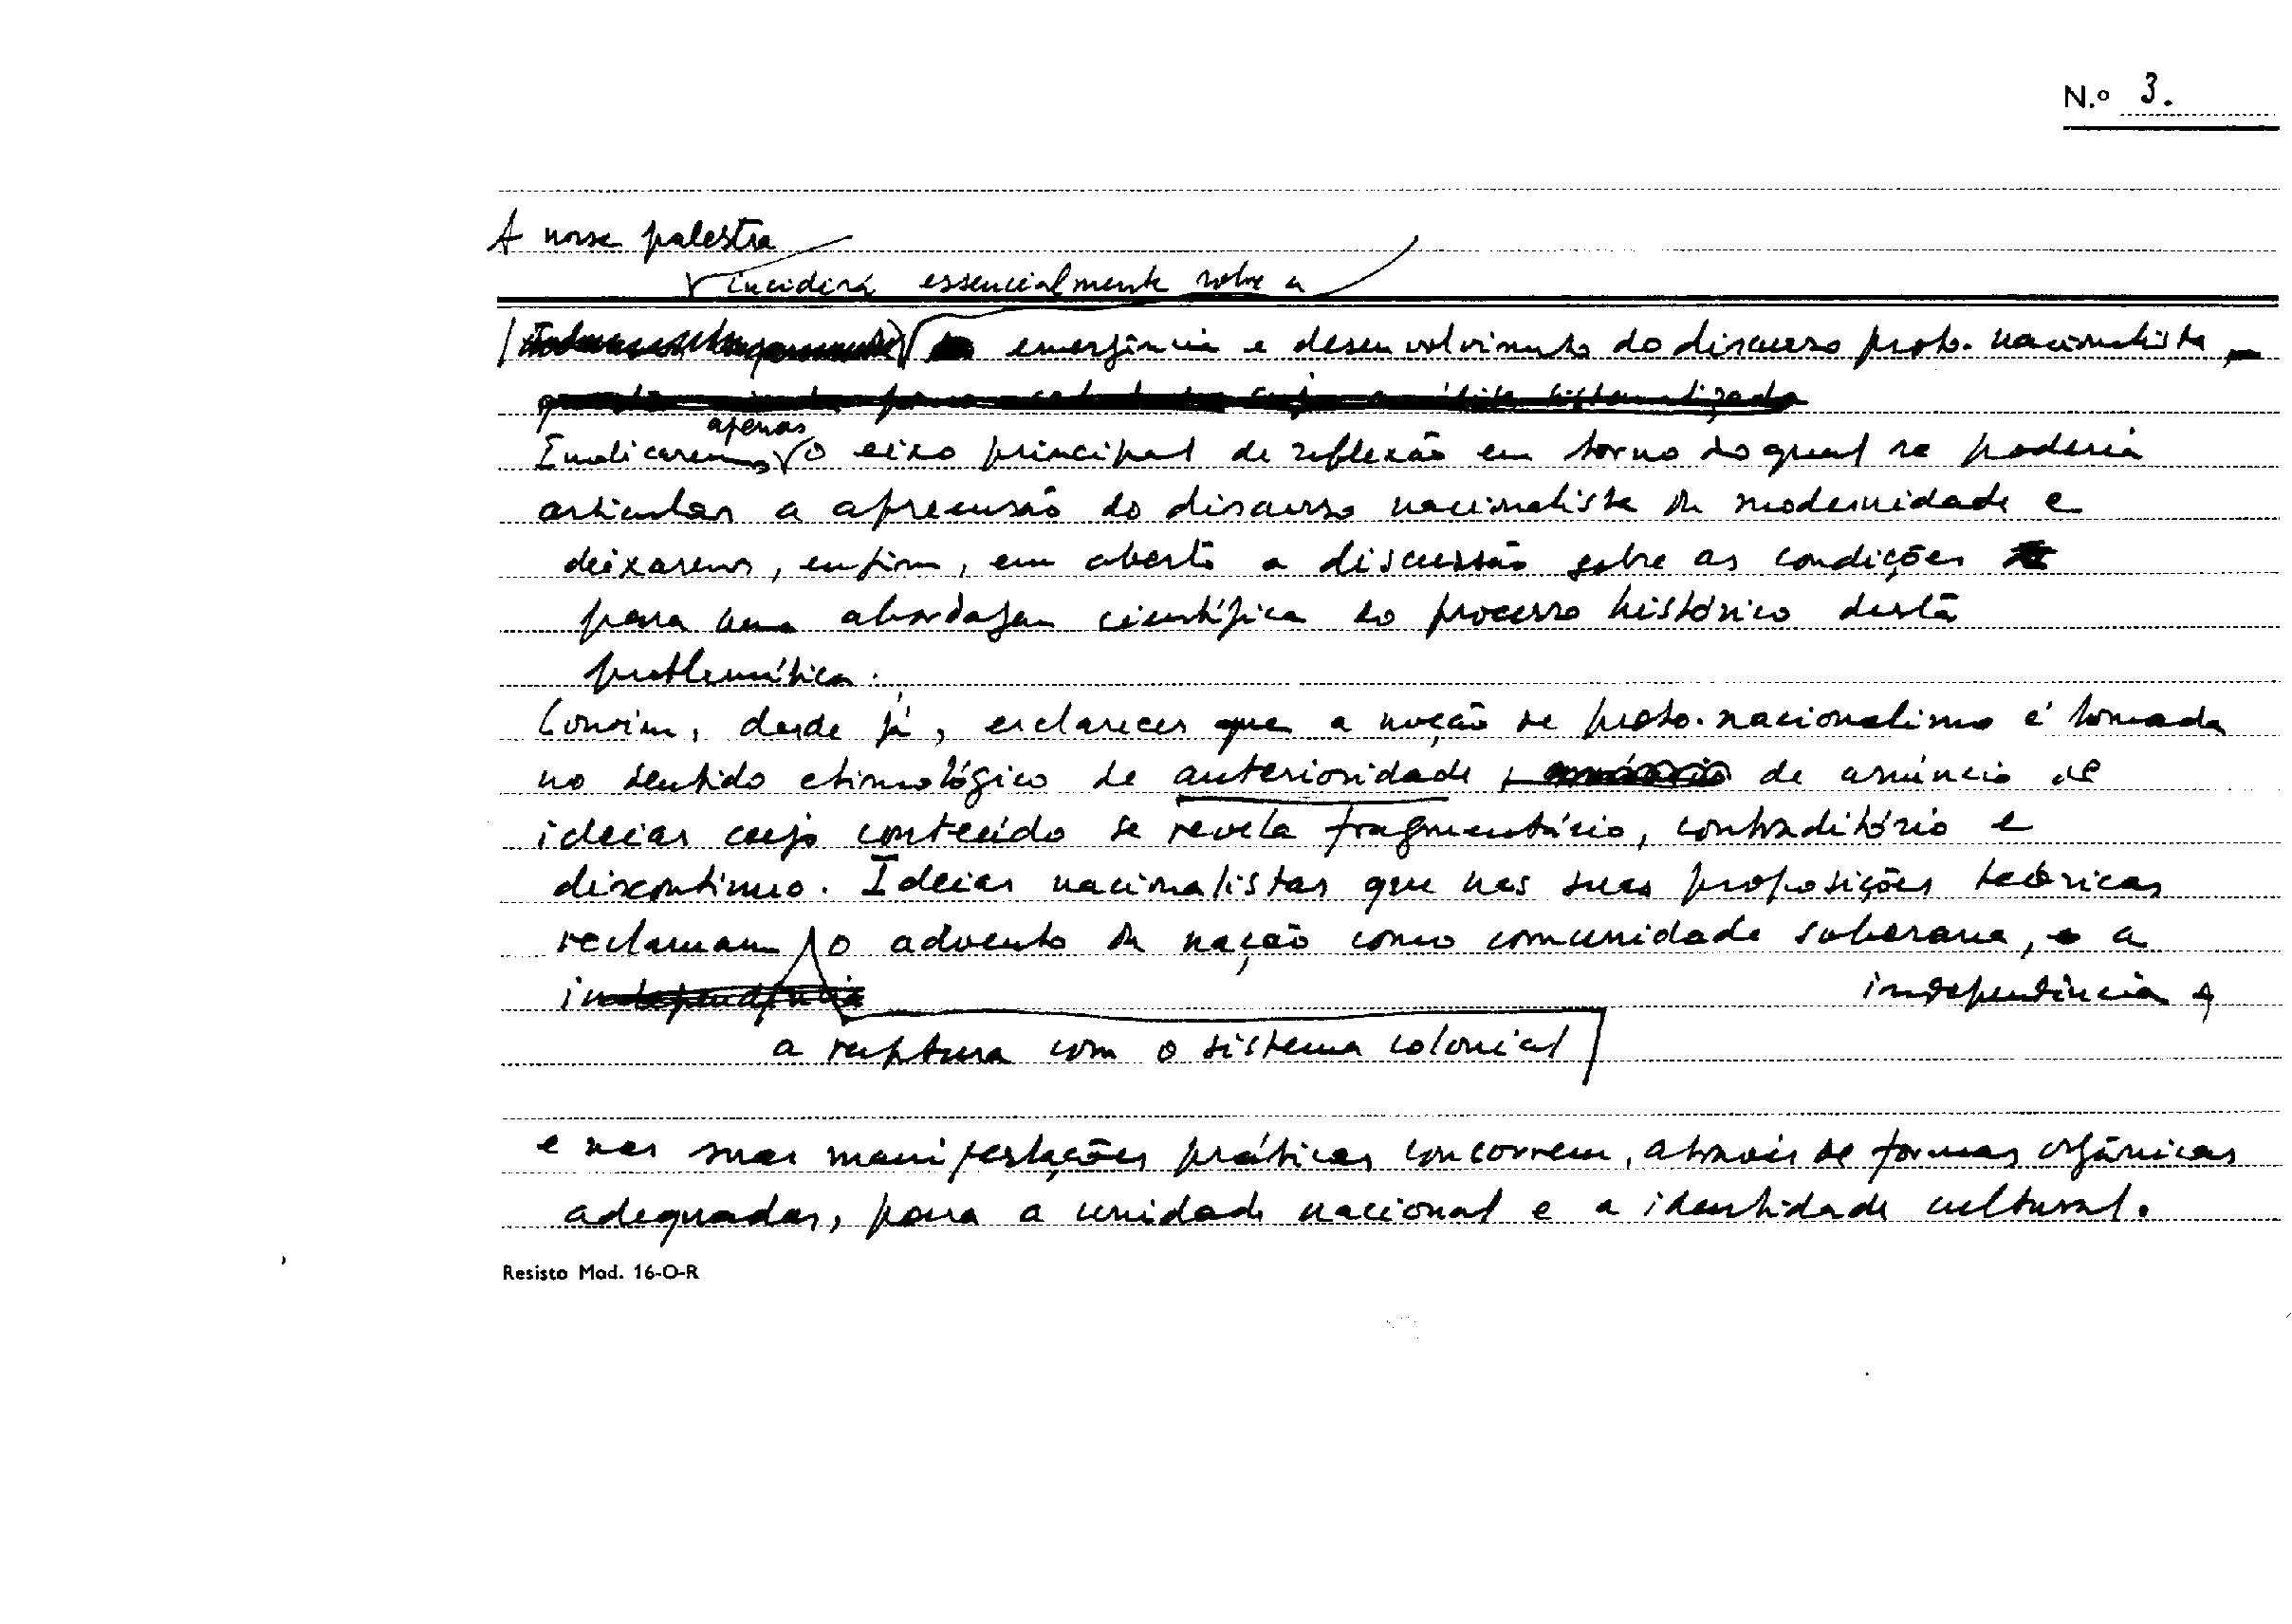 N.o 3.
A nossa palestra
incidirá essencialmente sobre a
emergência e desenvolvimento do discurso proto-nacionalista
apenas
Indicaremos o eixo principal de reflexão em torno do qual se poderia
articular a apreensão do discurso nacionalista da modernidade e
deixaremos, enfim, em aberto a discussão sobre as condições
para uma abordagem científica do processo histórico desta
problemática.
Convém, desde já, esclarecer que a noção de proto-nacionalismo é tomada
no sentido etimológico de anterioridade, de anúncio de
ideias cujo conteúdo se revela fragmentário, contraditório e
discontinuo. Ideias nacionalistas que nas suas proposições teóricas
reclamam o advento da nação como comunidade soberana, a
independência
independência
a ruptura com o sistema colonial
e nas suas manifestações práticas concorrem, através de formas orgânicas
adequadas, para a unidade nacional e a identidade cultural.
Resisto Mod. 16-O-R